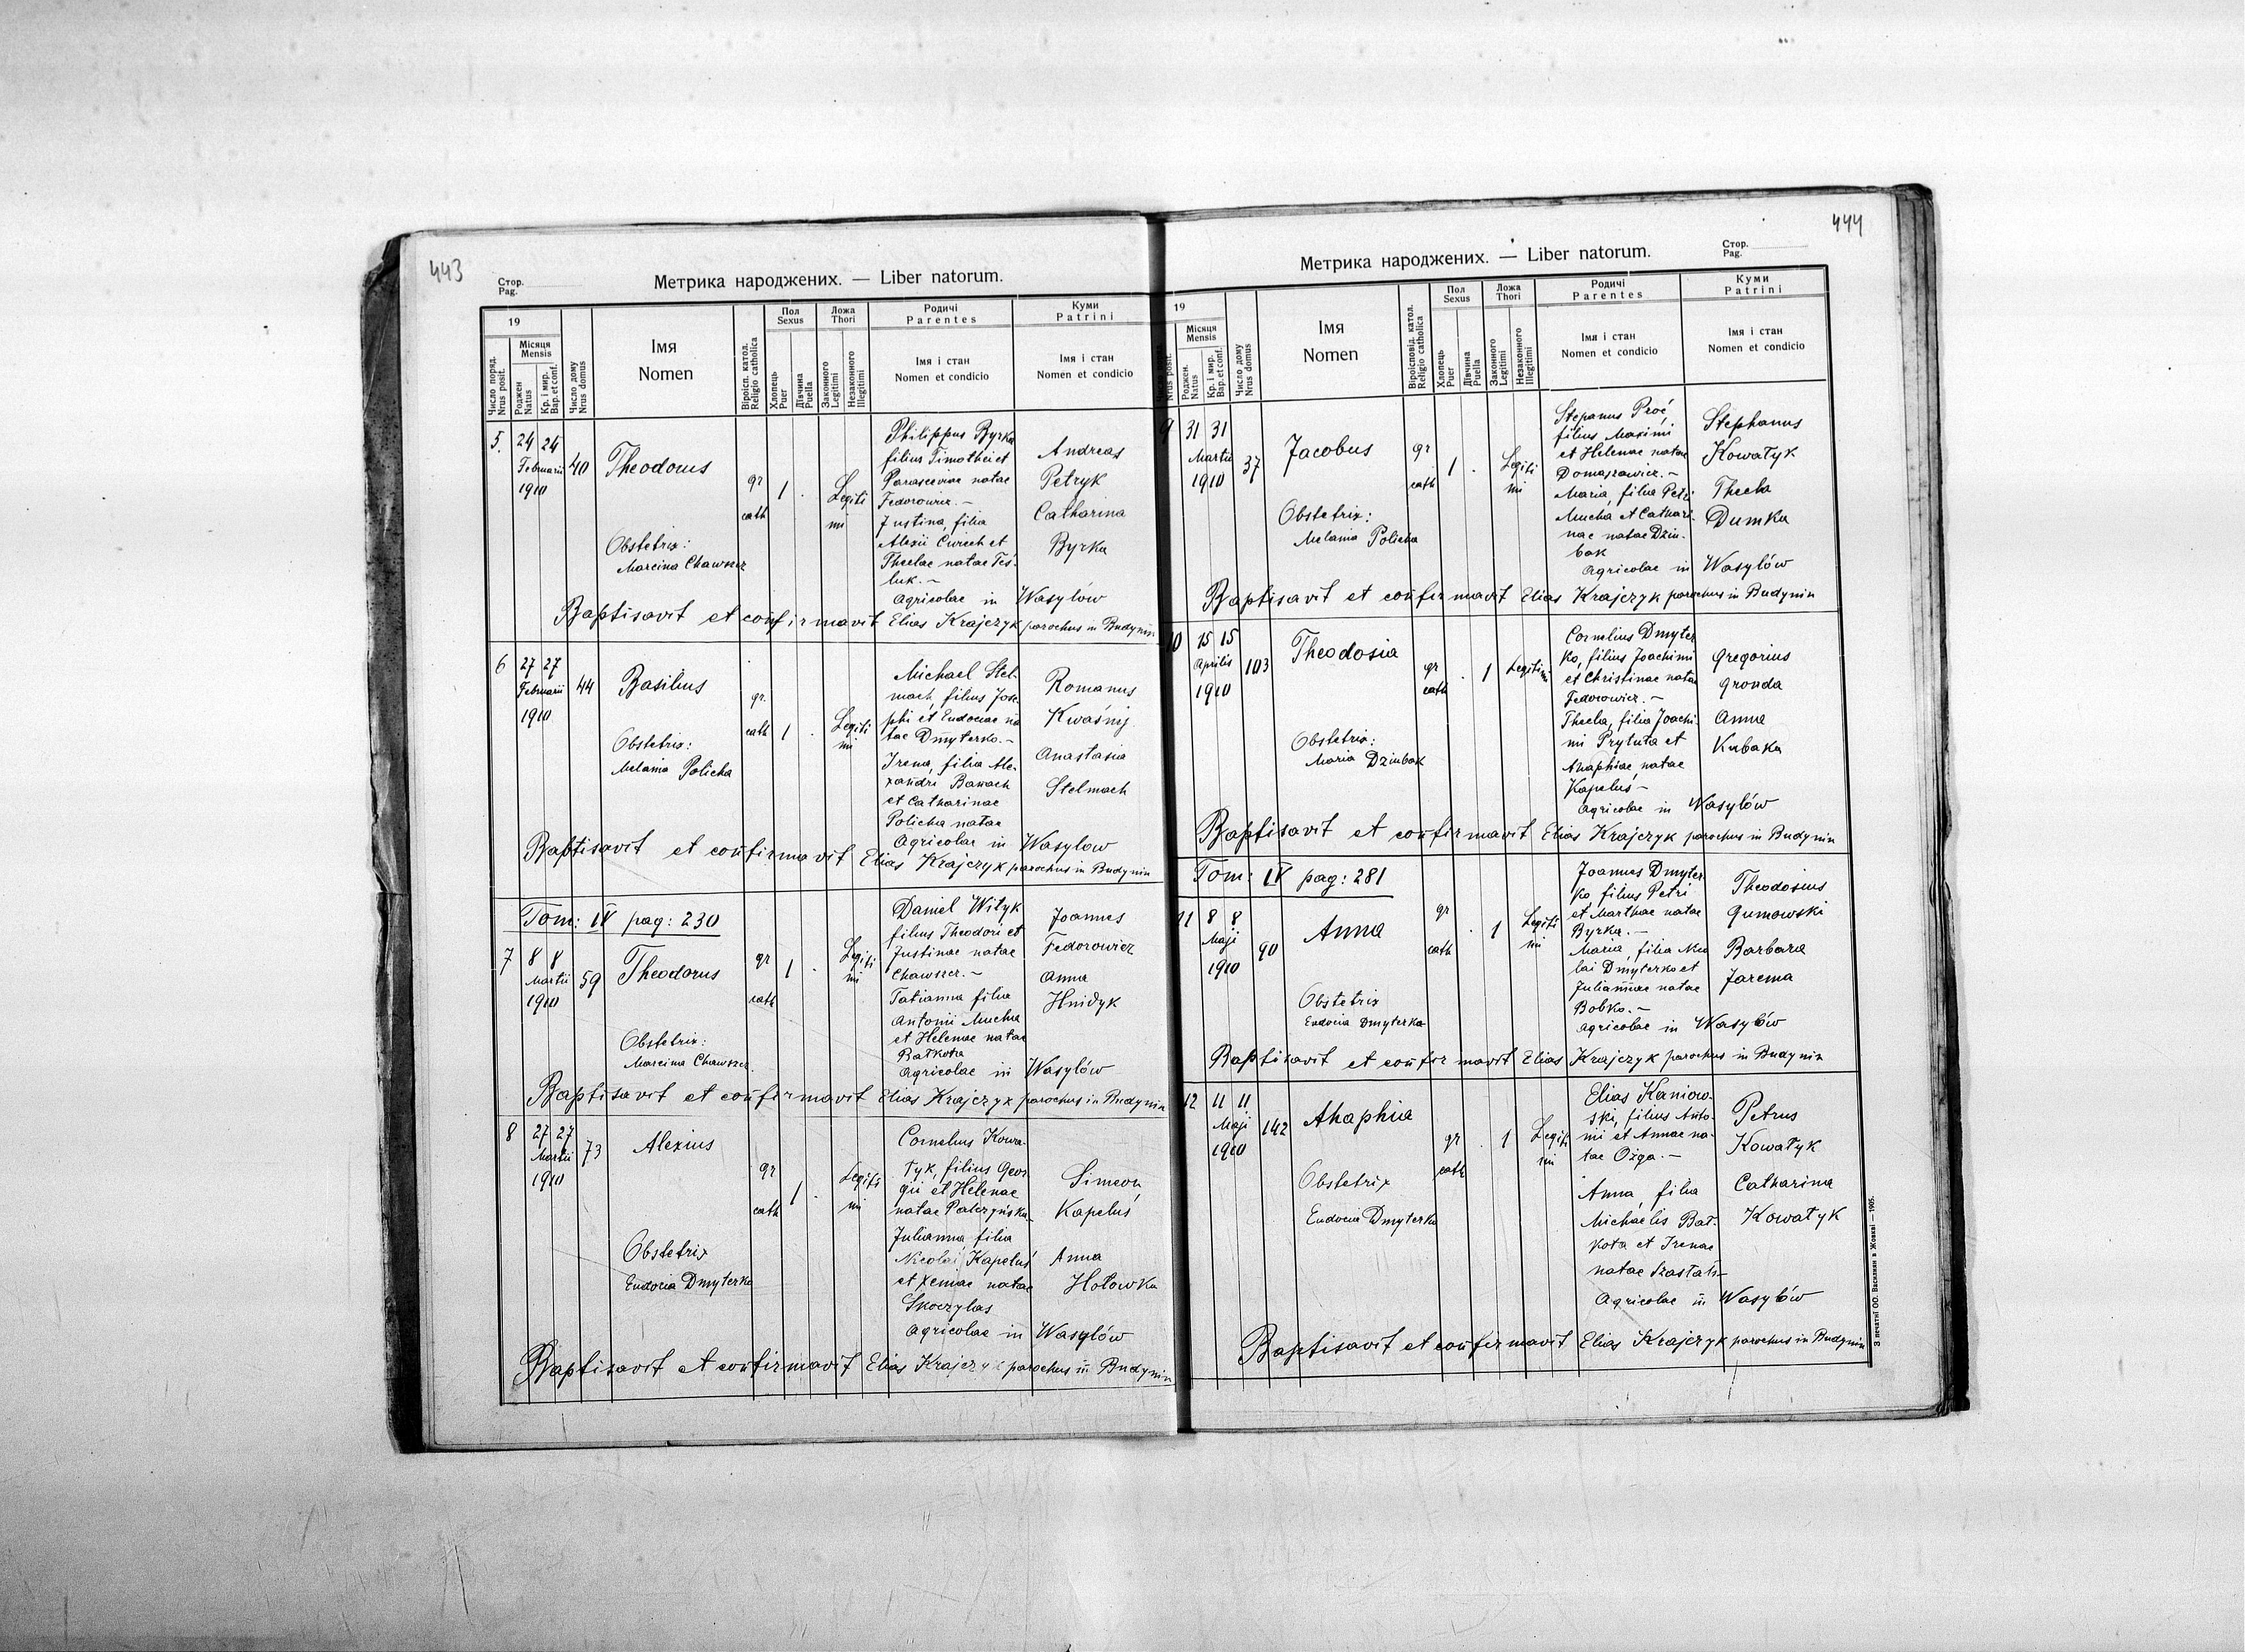 443
Стор.
Pag.
Метрика народжених. — Liber natorum.
19
Місяця
Mensis
Число поряд.
Nrus posit.
Роджен
Natus
Кр. і мир.
Bap. et conf.
Число дому
Nrus domus
Імя
Nomen
Віроісп. катол.
Religio catholica
Пол
Sexus
Хлопець
Puer
Дівчина
Puella
Ложа
Thori
Законного
Legitimi
Незаконного
Illegitimi
Родичі
Parentes
Імя і стан
Nomen et condicio
Куми
Patrini
Імя і стан
Nomen et condicio
5. 24 24
Februarii
1910
40
Theodorus
Obstetrix:
Marcina Chawszcz
gr
cath
1 .
Legiti
mi
Philippus Byrka
filius Timothei et
Parasceviae natae
Fedorowicz. —
Justina, filia
Alexii Cwiech et
Theclae natae Teś-
luk. —
Agricolae in Wasylów
Andreas
Petryk
Catharina
Byrka
Baptisavit et confirmavit Elias Krajczyk parochus in Budynin
6 27 27
Februarii
1910
44
Basilius
Obstetrix:
Melania Policha
gr.
cath
1 .
Legiti
mi
Michael Stel-
mach, filius Jose-
phi et Eudociae na
tae Dmyterko. —
Irena, filia Ale-
xandri Banach
et Catharinae
Policha natae
Agricolae in Wasylow
Romanus
Kwaśnij
Anastasia
Stelmach
Baptisavit et confirmavit Elias Krajczyk parochus in Budynin
Tom: IV pag: 230
7 8 8
Martii
1910
59
Theodorus
Obstetrix:
Marcina Chawszcz.
gr
cath
1 .
Legiti
mi
Daniel Wityk
filius Theodori et
Justinae natae
Chawszcz. —
Tatianna filia
Antonii Mucha
et Helenae natae
Bałkota
Agricolae in Wasylów
Joannes
Fedorowicz
Anna
Hnidyk
Baptisavit et confirmavit Elias Krajczyk parochus in Budynin
8 27 27
Martii
1910
73
Alexius
Obstetrix
Eudocia Dmyterko
gr
cath
1 .
Legiti
mi
Cornelius Kowa-
łyk, filius Geor
gii et Helenae
natae Palczyńska
Julianna filia
Nicolai Kapeluś
et Xeniae natae
Skoczylas
Agricolae in Wasylów
Simeon
Kapeluś
Anna
Hołowka
Baptisavit et confirmavit Elias Krajczyk parochus in Budynin
444
Стор.
Pag.
Метрика народжених. — Liber natorum.
19
Місяця
Mensis
Nrus posit.
Роджен.
Natus
Кр. і мир.
Bap. et conf.
Число дому
Nrus domus
Імя
Nomen
Віроісповід. катол.
Religio catholica
Пол
Sexus
Хлопець
Puer
Дівчина
Puella
Ложа
Thori
Законного
Legitimi
Незаконного
Illegitimi
Родичі
Parentes
Імя і стан
Nomen et condicio
Куми
Patrini
Імя і стан
Nomen et condicio
9 31 31
Martii
1910
37
Jacobus
Obstetrix:
Melania Policha
gr
cath
1 .
Legiti
mi
Stepanus Proć,
filius Maximi
et Helenae natae
Domaszewicz. —
Maria, filia Petri
Mucha et Cathari-
nae natae Dziu-
bak
Agricolae in Wasylów
Stephanus
Kowałyk
Thecla
Dumka
Baptisavit et confirmavit Elias Krajczyk parochus in Budynin
10 15 15
Aprilis
1910
103
Theodosia
Obstetrix:
Maria Dziubak
gr
cath
. 1
Legitimi
Cornelius Dmyter
ko, filius Joachimi
et Christinae natae
Fedorowicz. —
Thecla, filia Joachi-
mi Prytuła et
Ahaphiae natae
Kapeluś —
Agricolae in Wasylów
Gregorius
Gronda
Anna
Kubaka
Baptisavit et confirmavit Elias Krajczyk parochus in Budynin
Tom: IV pag: 281
11 8 8
Maji
1910
90
Anna
Obstetrix
Eudocia Dmyterko
gr
cath
. 1
Legiti
mi
Joannes Dmyter
ko filius Petri
et Marthae natae
Byrka. —
Maria, filia Nico
lai Dmyterko et
Juliannae natae
Bobko. —
Agricolae in Wasylów
Theodosius
Gumowski
Barbara
Jarema
Baptisavit et confirmavit Elias Krajczyk parochus in Budynin
12 11 11
Maji
1910
142
Ahaphia
Obstetrix
Eudocia Dmyterko
gr
cath
. 1
Legiti
mi
Elias Kaniow-
ski, filius Anto-
nii et Annae na-
tae Ożga. —
Anna, filia
Michaelis Bał-
kota et Irenae
natae Szastał —
Agricolae in Wasylów
Petrus
Kowałyk
Catharina
Kowałyk
Baptisavit et confirmavit Elias Krajczyk parochus in Budynin
З печатні ОО. Василиян в Жовкві — 1905.